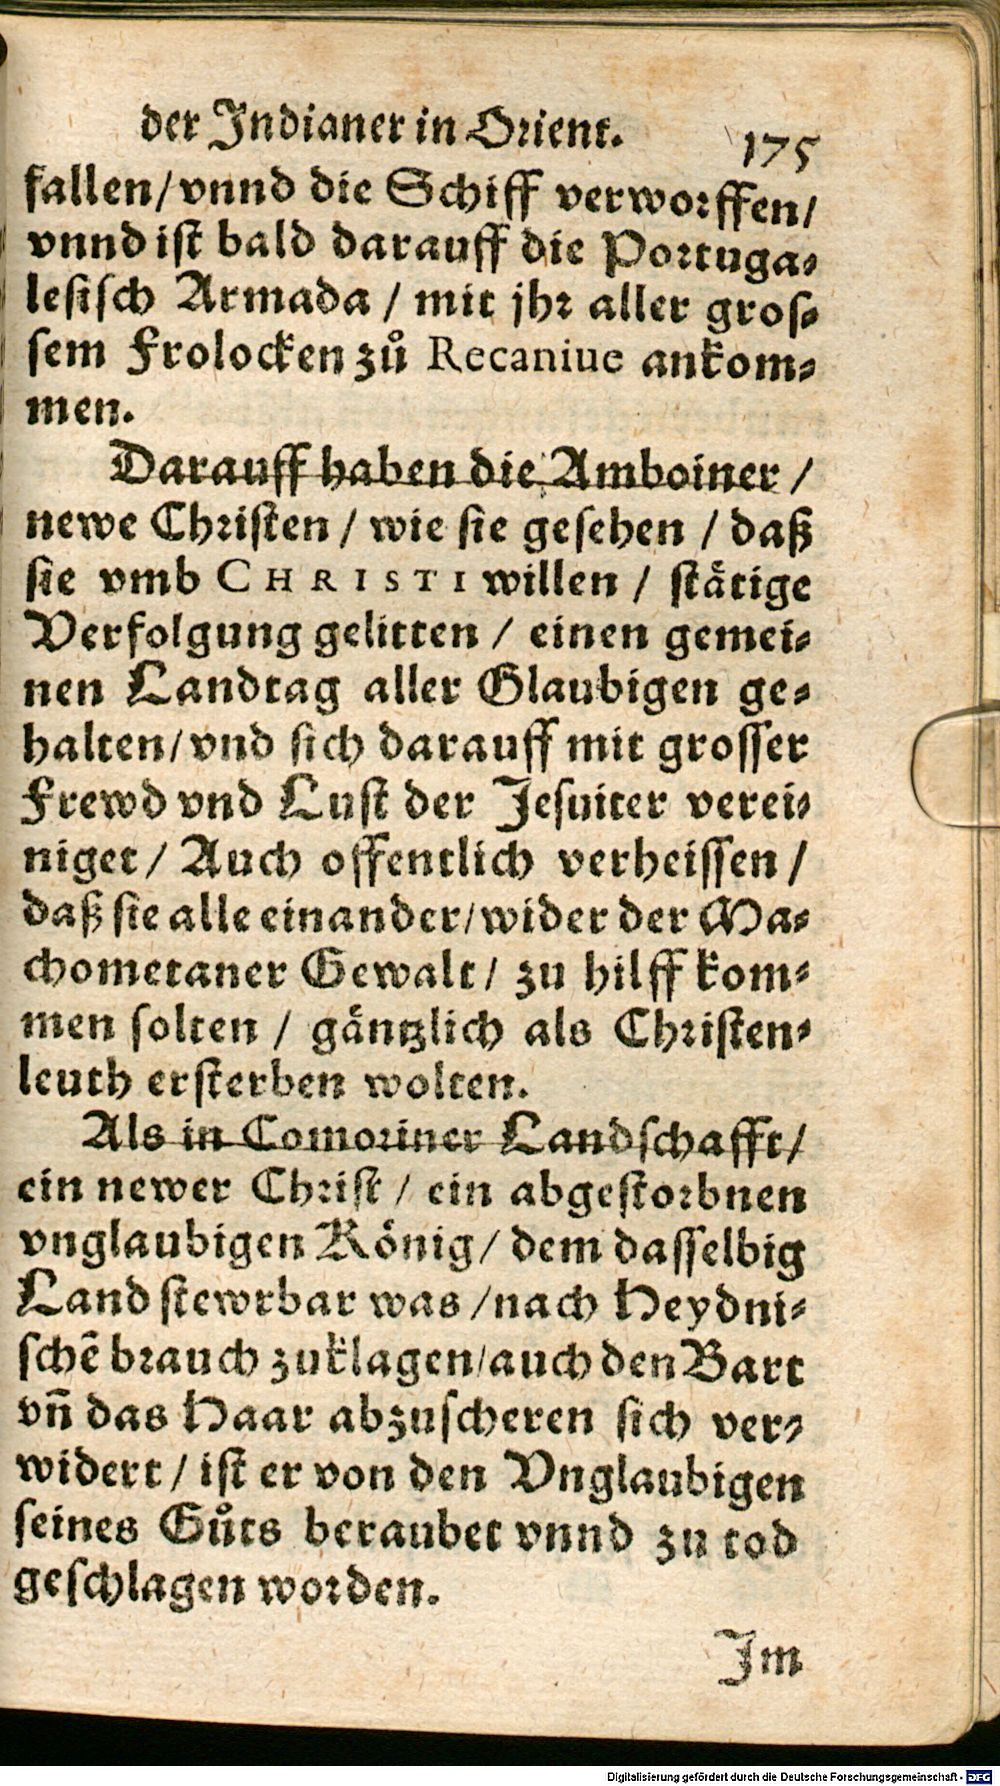 der Indianer in Orient. 175
fallen/ vnnd die Schiff verworffen/
vnnd ist bald darauff die Portuga-
lesisch Armada / mit jhr aller gros-
sem Frolocken zů Recaniue ankom-
men.
Darauff haben die Amboiner /
newe Christen / wie sie gesehen / daß
sie vmb CHRISTI willen / stätige
Verfolgung gelitten / einen gemei-
nen Landtag aller Glaubigen ge-
halten/ vnd sich darauff mit grosser
Frewd vnd Lust der Jesuiter verei-
niget / Auch offentlich verheissen /
daß sie alle einander/ wider der Ma-
chometaner Gewalt / zu hilff kom-
men solten / gäntzlich als Christen-
leuth ersterben wolten.
Als in Comoriner Landschafft/
ein newer Christ / ein abgestorbnen
vnglaubigen König / dem dasselbig
Land stewrbar was / nach Heydni-
schẽ brauch zuklagen/ auch den Bart
vñ das Haar abzuscheren sich ver-
widert / ist er von den Vnglaubigen
seines Gůts beraubet vnnd zu tod
geschlagen worden.
Im
Digitalisierung gefördert durch die Deutsche Forschungsgemeinschaft - DFG